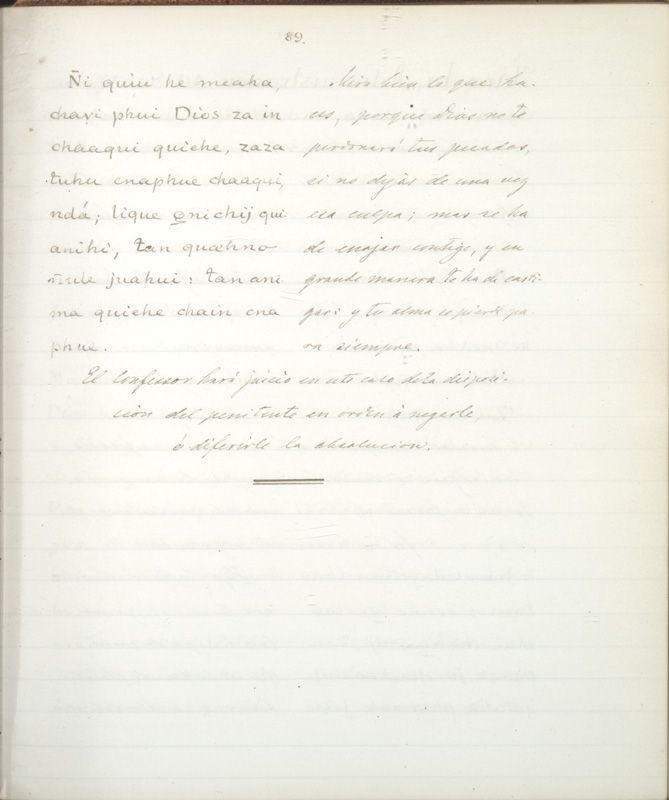 89.
Ñi quiu he meaha,
chavi phui Dios za in
chaaqui quiche, zaza
tuhu cnaphue chaaqui,
ndá; lique o̱nichij qui
anihi, tan quæhno
juahui: tan ani
ma quiche chain cna
phue.
Mira bien lo que ha-
ces, porque Dios no te
perdonará tus pecados,
si no dejàs de una vez
esa culpa; mas se ha
de enojar contigo, y en
grande manera te ha de casti-
gar: y tu alma se pierde pa-
ra siempre.
El Confessor hará juicio en este caso de la disposi-
cion del penitente en orden à negarle,
ó diferirle la absolucion.